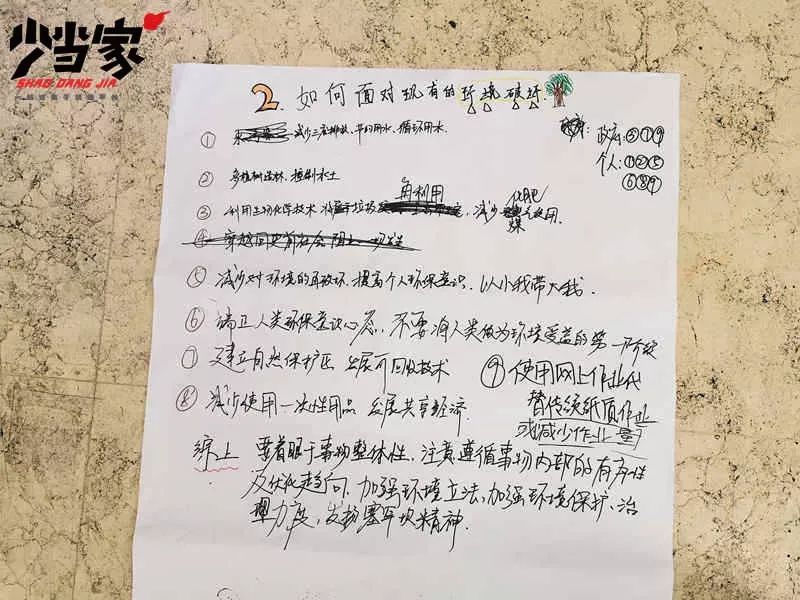 少当家
SHAO DANG JIA
2. 如何面对现有的环境破坏
政府: ③①⑨
个人: ①②⑤
⑥⑧⑨
① 减少三废排放、节约用水、循环用水
② 多植树造林、控制水土
再利用 化肥
③ 利用生物化学技术 将垃圾 减少 煤 使用.
④ 穿越回史前社会 阻止一切发生
⑤ 减少对环境的再破坏. 提高个人环保意识. 以小我带大我.
⑥ 端正人类环保意识心态, 不要将人类做为环境受益的第一阶级
⑦ 建立自然保护区 发展可回收技术
⑧ 减少使用一次性用品 发展共享经济.
⑨ 使用网上作业代
替传统纸质作业
或减少作业量
综上 要着眼于事物整体性. 注意遵循事物内部的有序性
及优化趋向. 加强环境立法, 加强环境保护、治
理力度, 发扬塞罕坝精神.